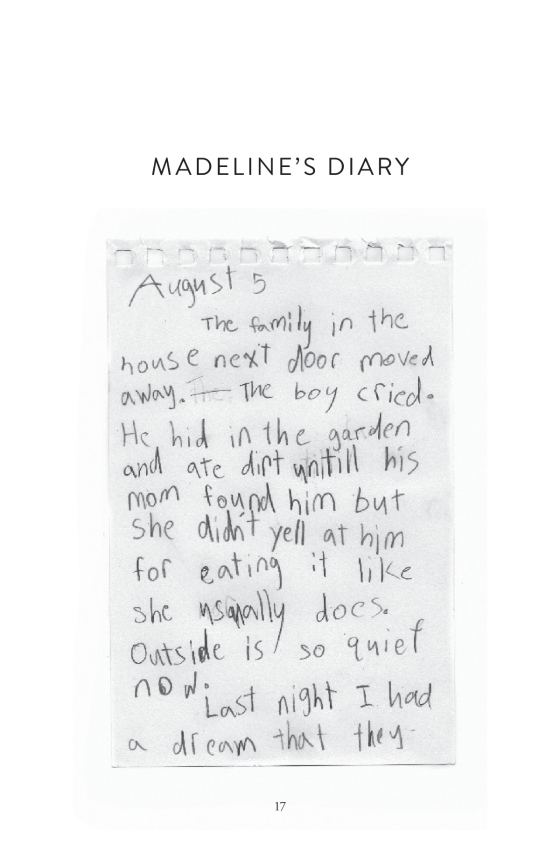 MADELINE'S DIARY
August 5
The family in the
house next door moved
away. The The boy cried.
He hid in the garden
and ate dirt untill his
mom found him but
she didn't yell at him
for eating it like
she usually does.
Outside is so quiet
now.
Last night I had
a dream that they
17